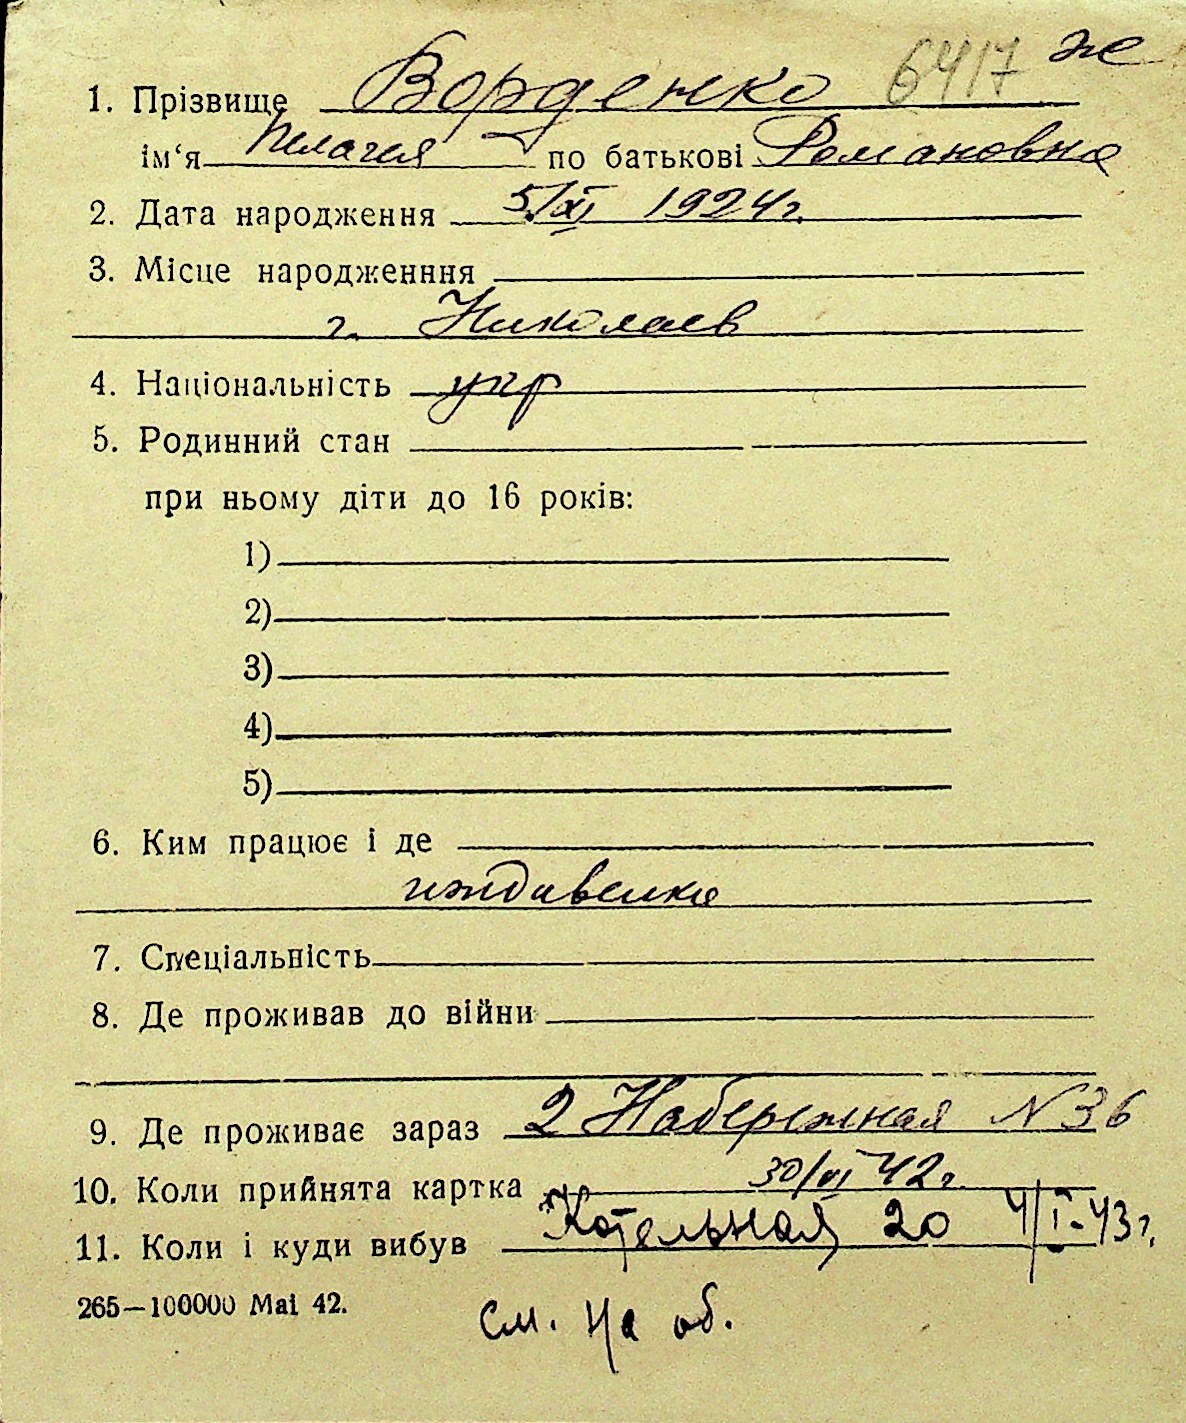 1. Прізвище Ворденко 6417 ж
ім‘я Пелагея по батькові Романовна
2. Дата народження 5/XI 1924 г.
3. Місце народженння
г. Николаев
4. Національність укр
5. Родинний стан
при ньому діти до 16 років:
1)
2)
3)
4)
5)
6. Ким працює і де
иждивенка
7. Спеціальність
8. Де проживав до війни
9. Де проживає зараз 2 Набережная N 36
10. Коли прийнята картка 30/VI 42 г.
11. Коли і куди вибув Котельная 20 4/I-43 г.
265—100000 Маі 42.
См. на об.